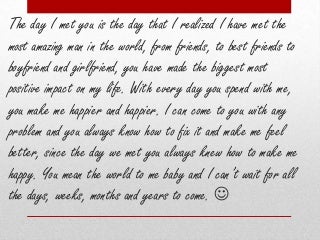 The day I met you is the day that I realized I have met the
most amazing man in the world, from friends, to best friends to
boyfriend and girlfriend, you have made the biggest most
positive impact on my life. With every day you spend with me,
you make me happier and happier. I can come to you with any
problem and you always know how to fix it and make me feel
better, since the day we met you always knew how to make me
happy. You mean the world to me baby and I can't wait for all
the days, weeks, months and years to come. ☺